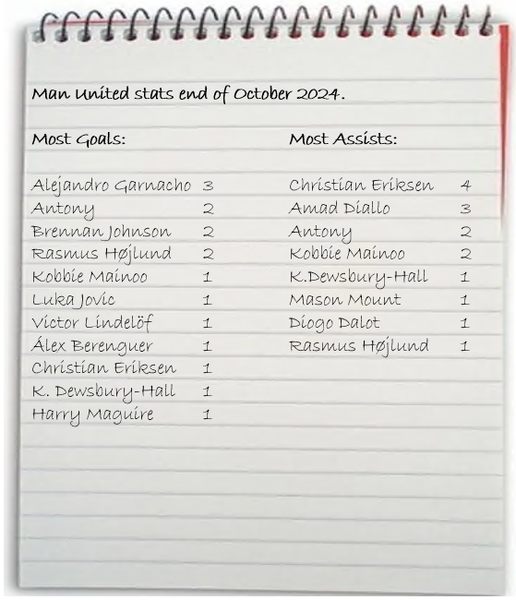 Man United stats end of October 2024.
Most Goals: Most Assists:
Alejandro Garnacho 3 Christian Eriksen 4
Antony 2 Amad Diallo 3
Brennan Johnson 2 Antony 2
Rasmus Højlund 2 Kobbie Mainoo 2
Kobbie Mainoo 1 K.Dewsbury-Hall 1
Luka Jovic 1 Mason Mount 1
Victor Lindelöf 1 Diogo Dalot 1
Álex Berenguer 1 Rasmus Højlund 1
Christian Eriksen 1
K. Dewsbury-Hall 1
Harry Maguire 1